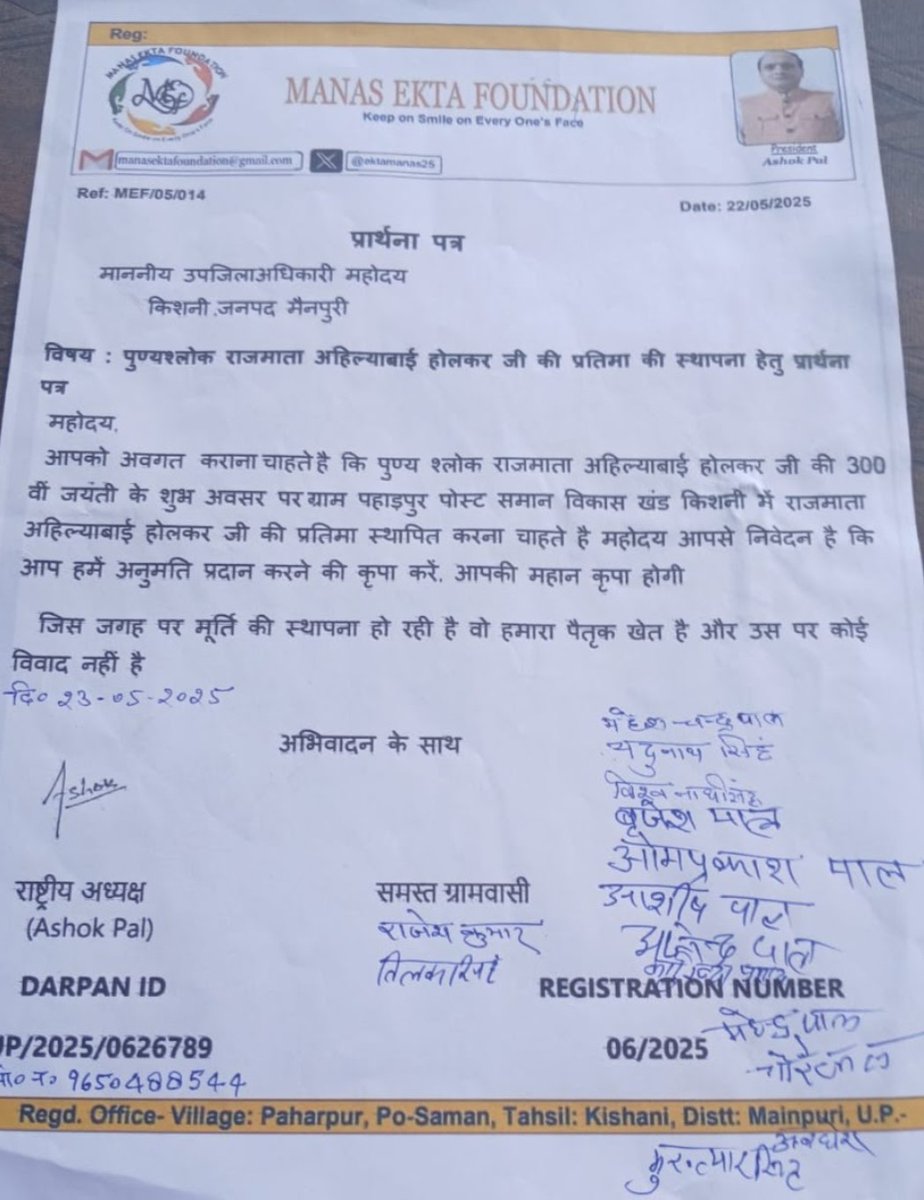 Reg:
MANAS EKTA FOUNDATION
MANAS EKTA FOUNDATION
Keep on Smile on Every One's Face
Keep on Smile on Every One's Face
President
Ashok Pal
manasektafoundation@gmail.com
@ektamanas25
Ref: MEF/05/014
Date: 22/05/2025
प्रार्थना पत्र
माननीय उपजिलाअधिकारी महोदय
किशनी ,जनपद मैनपुरी
विषय : पुण्यश्लोक राजमाता अहिल्याबाई होलकर जी की प्रतिमा की स्थापना हेतु प्रार्थना
पत्र
महोदय,
आपको अवगत कराना चाहते है कि पुण्य श्लोक राजमाता अहिल्याबाई होलकर जी की 300
वीं जयंती के शुभ अवसर पर ग्राम पहाड़पुर पोस्ट समान विकास खंड किशनी में राजमाता
अहिल्याबाई होलकर जी की प्रतिमा स्थापित करना चाहते है महोदय आपसे निवेदन है कि
आप हमें अनुमति प्रदान करने की कृपा करें, आपकी महान कृपा होगी
जिस जगह पर मूर्ति की स्थापना हो रही है वो हमारा पैतृक खेत है और उस पर कोई
विवाद नहीं है
दि० २३-०५-2025
अभिवादन के साथ
महेश चन्द्र पाल
यदुनाथ सिंह
बृजेश पाल
ओमप्रकाश पाल
आशीष पाल
Ashok
राष्ट्रीय अध्यक्ष
(Ashok Pal)
समस्त ग्रामवासी
राजेश कुमार
तिलक सिंह
DARPAN ID
REGISTRATION NUMBER
UP/2025/0626789
06/2025
मो० न० 9650488544
Regd. Office- Village: Paharpur, Po-Saman, Tahsil: Kishani, Distt: Mainpuri, U.P.-
अवधेश